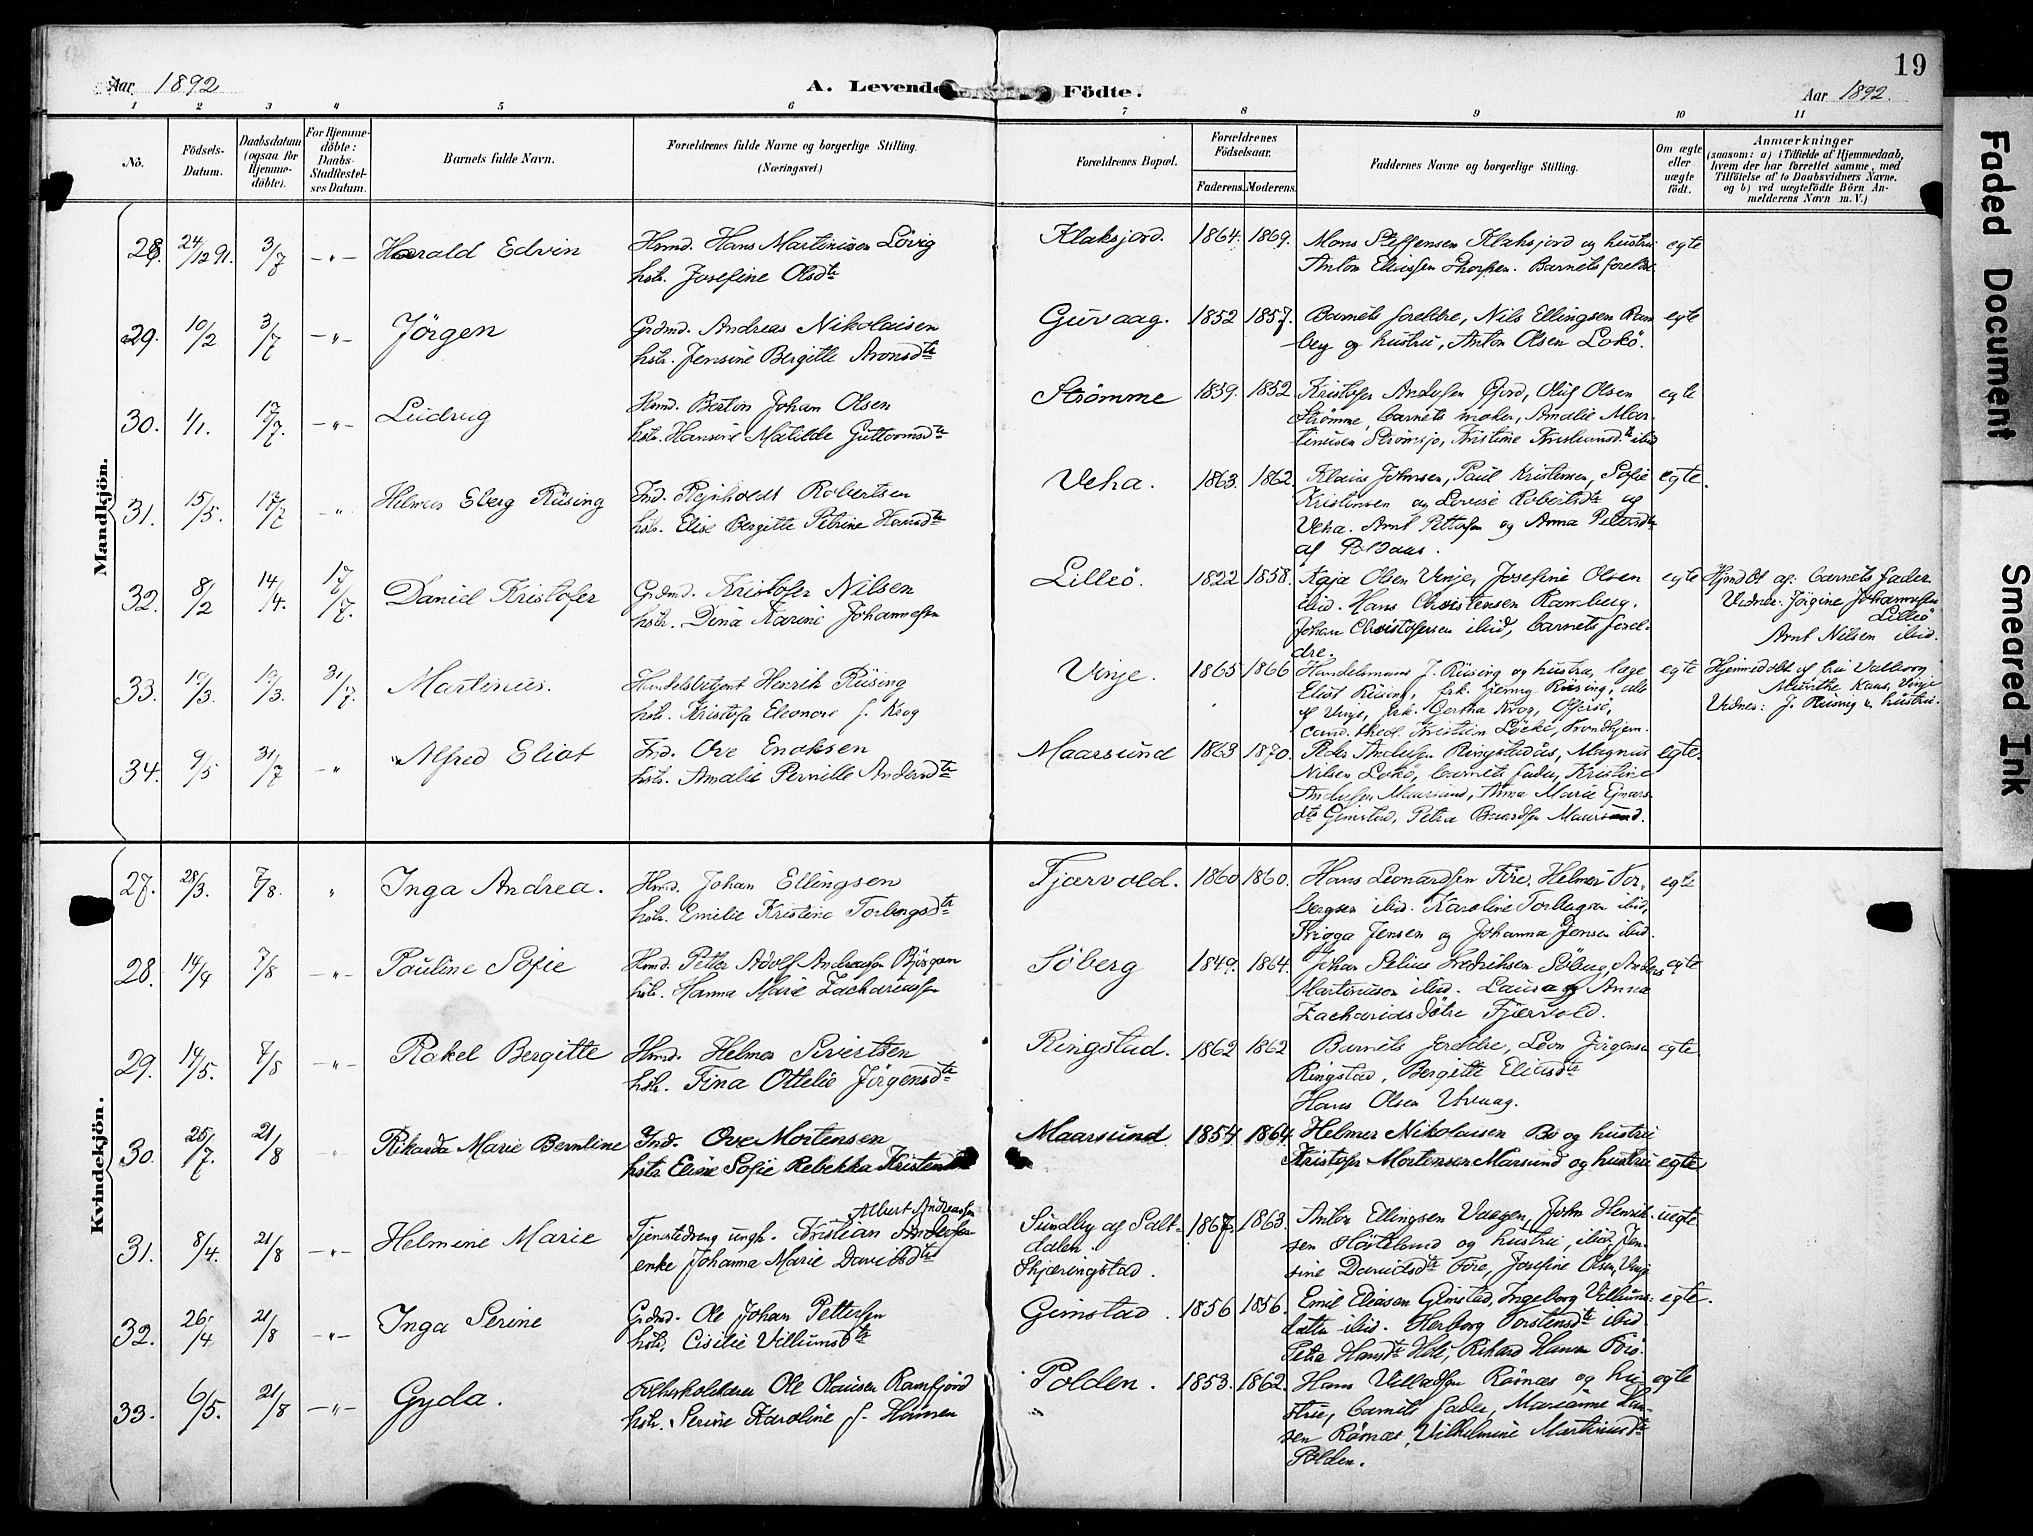 19
Aar 1892
A. Levende Födte.
Aar 1892.
1 2 3 4 5 6 7 8 9 10 11
No.
Födsels-Datum.
Daabsdatum (ogsaa for Hjemme-döbte).
For Hjemme-döbte: Daabs-Stadfæstel-ses Datum.
Barnets fulde Navn.
Forældrenes fulde Navne og borgerlige Stilling.
(Næringsvei.)
Forældrenes Bopæl.
Forældrenes Födselsaar.
Faderens. Moderens.
Faddernes Navne og borgerlige Stilling.
Om ægte eller uægte födt.
Anmærkninger
(saasom: a) i Tilfælde af Hjemmedaab,
hvem der har forrettet samme, med
Tilföielse af to Daabsvidners Navne,
og b) ved uægtefödte Börn An-
melderens Navn m. V.)
Mandkjön.
28. 24/12 91. 3/7 —"— Harald Edvin
Hmd. Hans Martinusen Lövig
hstr. Josefine Olsdtr
Klaksjord. 1864. 1869.
Mons Steffensen Klaksjord og hustru
Anton Eliassen. Barnets foreldre
egte
29. 10/2 3/7 —"— Jörgen
Grdmd. Andreas Nikolaisen
hstr. Jensine Bergitte Aronsdtr
Guvaag. 1852 1857.
Barnets foreldre, Nils Ellingsen Ram
berg og hustru, Anton Olsen Lokö.
egte
30. 1/1. 17/7. —"— Ludvig
Hmd. Berton Johan Olsen
hstr. Hansine Matilde Guttormsdtr
Strömme 1859. 1852
Kristofer Andersen, Oluf Olsen
Strömme, barnets moder, Amalie Mar-
tinusen, Kristine Kristiansdtr ibid
egte
31. 15/5. 17/7 —"— Helmer Eberg Rüsing
Ind. Reinholdt Robertsen
hstr. Elise Bergitte Petrine Hansdtr
Veha. 1863. 1862.
Klaus Johnsen, Paul Kristensen, Sofie
Kristensen og Lovise Robertsdtr og
Veha. Arnt Pettersen og Anna Petersdtr
af
egte.
32. 8/2 14/4. 17/7. Daniel Kristofer
Grdmd. Kristofer Nilsen
hstr. Dina Karine Johannessen
Lilleö. 1822 1858.
Kaja Olsen Vinje, Josefine Olsen
ibid. Hans Christensen Ramberg.
Johan Christofersen ibid, barnets forel-
dre.
egte
Hjmdbt af: barnets fader.
Vidner: Jörgine Johannessen
Lilleö
Arnt Nilsen ibid.
33. 19/3. 19/3. 31/7. Martinus.
Handelsbetjent Henrik Rüsing
hstr. Kristofa Eleonore f. Krog
Vinje. 1865 1866
Handelsmand J. Rüsing og hustru, læge
Eliot Rüsing, frk. Jenny Rüsing, alle
af Vinje, frk. Bertha Krog, Offersö,
cand. theol. Kristian Löcke, Trondhjem.
egte
Hjemmedöbt af fru Valborg
Munthe Kaas, Vinje
Vidner: J. Rüsing & hustru.
34. 9/5 31/7 —" Alfred Eliot
Ind. Ove Enoksen
hstr. Amalie Pernille Andersdtr
Maarsund 1863 1870.
Peder Andersen, Magnus
Nilsen Lokö, barnets fader, Kristine
Andersen Maarsund, Anna Marie
dtr Gimstad, Petra Maarsund.
egte.
Kvindekjön.
27. 28/3. 7/8. " Inga Andrea.
Hmd. Johan Ellingsen
hstr. Emilie Kristine Torbergsdtr
Fjærvold. 1860 1860.
Hans Leonardsen Före. Helmer Tor-
bergsen ibid. Karoline Torbergsen ibid,
Jensen og Johanna Jensen ibid.
egte
28. 14/4 7/8 —"— Pauline Sofie
Hmd. Petter Adolf Andreassen Björgan
hstr. Hanna Marie Zachariassen
Söberg 1849. 1864.
Johan Selius Fredriksen Söberg, Anders
Martinusen ibid. Laura og Anna
Zacharias Døtre Fjærvold.
egte
29. 14/5. 7/8 —"— Rakel Bergitte
Hmd. Helmer Sivertsen
hstr. Fina Ottelie Jörgensdtr
Ringstad. 1862 1862
Barnets foreldre, Leon Jörgensen
Ringstad, Bergitte Eliasdtr
Hans Olsen Utvaag.
egte.
30. 25/7. 21/8 " Rikarda Marie Berntine
Ind. Ove Mortensen
hstr. Eline Sofie Rebekka Kristensdtr
Maarsund 1854 1864.
Helmer Nikolaisen Bö og hustru
Kristofer Mortensen Marsund og hustru
egte
31. 8/4. 21/8 —"— Helmine Marie
Albert Andreassen
Tjenestedreng ungk. Kristian Andersen
enke Johanna Marie Davidsdtr
Sundby af Salt-
dalen
Skjæringstad.
1867. 1863.
Anton Ellingsen Vaagen, John Henrik-
sen og hustru, ibid, Jen-
sine Davidsdtr Före, Josefine Olsen, Vinje
uegte
32. 26/4 21/8 —"— Inga Serine
Grdmd. Ole Johan Pettersen
hstr. Cisilie Villumsdtr
Gimstad. 1856 1856.
Emil Eliasen Gimstad, Ingeborg Villums-
datter ibid. Herborg Torstensdtr ibid.
Petra Hansdtr, Rikard Hansen
egte.
33. 6/5. 21/8 —"— Gyda.
Ole Olausen Ramfjord
hstr. Serine Karoline f. Hansen
Polden. 1853. 1862.
Hans Villadsen Rörnæs og hu-
stru, barnets fader, Marianne Han-
sen Rörnæs, Vilhelmine Martinusdtr
Polden.
egte
Faded Document
Smeared Ink